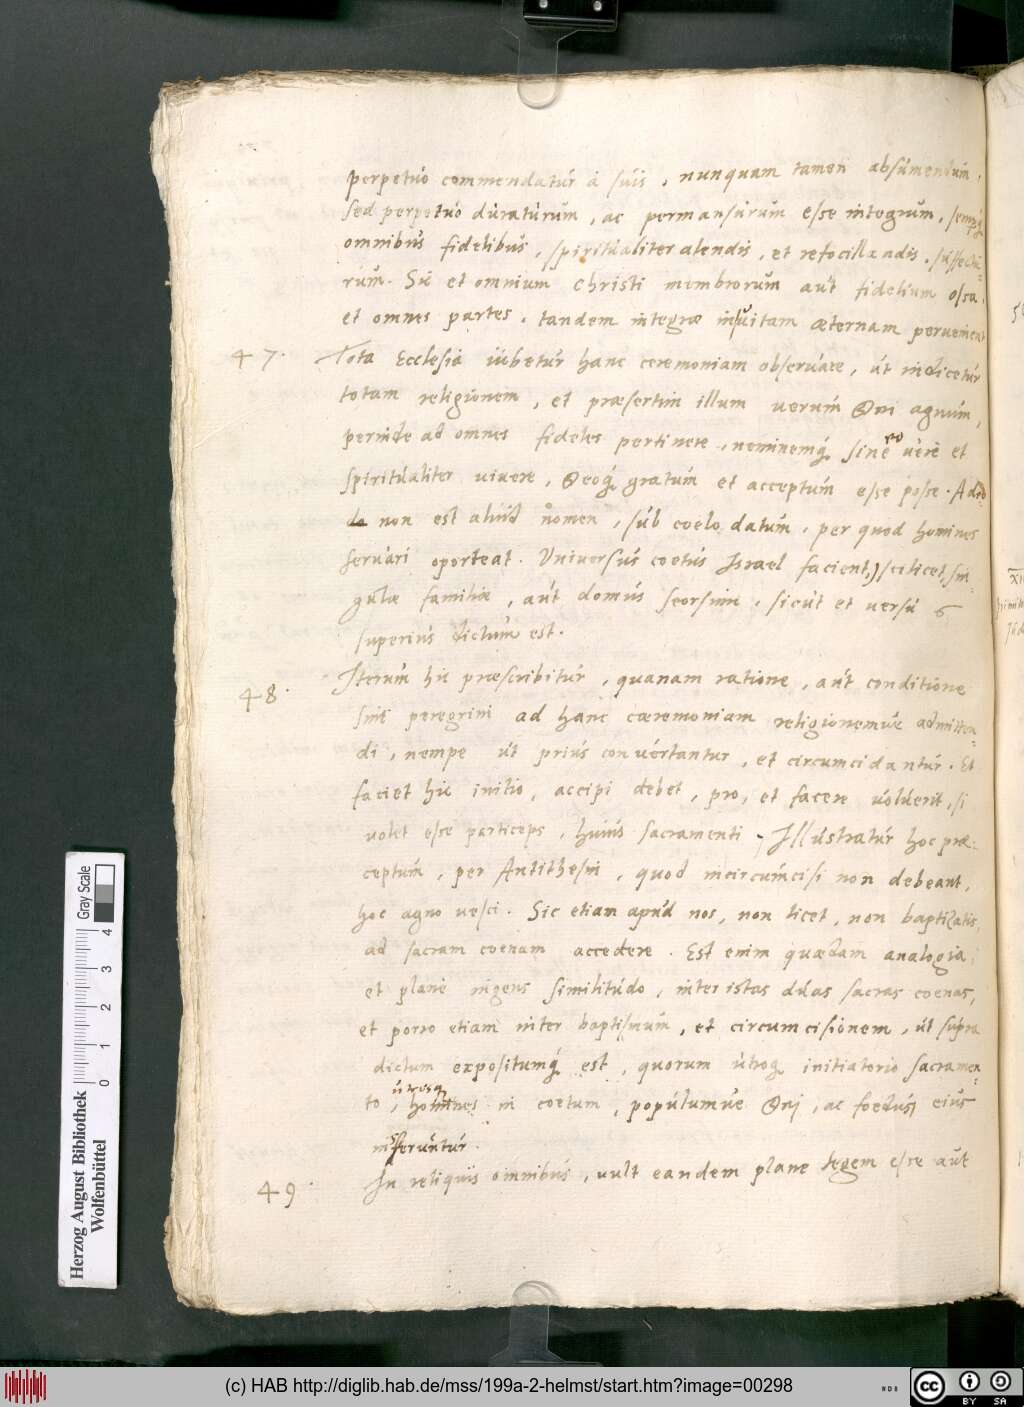 perpetuo commendatur à suis, nunquam tamen absumendum,
sed perpetuo duraturum, ac permansurum esse integrum, semperq́
omnibus fidelibus, spiritualiter alendis, et refocillandis, suffectu-
rum. Sic et omnium Christi membrorum aut fidelium ossa,
et omnes partes, tandem integræ in vitam æternam pervenient
47. Tota Ecclesia iubetur hanc ceremoniam observare, ut indicetur
totam religionem, et præsertim illum verum Dei agnum,
perinde ad omnes fideles pertinere, neminemq́ sine eo verè et
spiritualiter vivere, Deoq́ gratum et acceptum esse posse. Adeo
de non est aliud nomen, sub coelo datum, per quod homines
servari oporteat. Universus coetus Israel facient,) scilicet, sin-
gulæ familiæ, aut domus seorsim, sicut et versu 6
superius dictum est.
48. Iterum hic præscribitur, quanam ratione, aut conditione
sint peregrini ad hanc cæremoniam religionemve admitten-
di, nempe ut prius convertantur, et circumcidantur. Et
faciet hic initio, accipi debet, pro, et facere voluerit, si
volet esse particeps, huius sacramenti, Illustratur hoc præ-
ceptum, per Antithesin, quod incircumcisi non debeant,
hoc agno vesci. Sic etiam apud nos, non licet, non baptizatis,
ad sacram coenam accedere. Est enim quædam analogia,
et planè ingens similitudo, inter istas duas sacras coenas,
et porro etiam inter baptismum, et circumcisionem, ut supra
dictum expositumq́ est, quorum utroq́ initiatorio sacramen-
to, utrosq homines in coetum, populumve Dei, ac foedus eius
inseruntur.
49. In reliquis omnibus, vult eandem plane legem esse aut
Herzog August Bibliothek
Wolfenbüttel
Gray Scale
0 1 2 3 4
(c) HAB http://diglib.hab.de/mss/199a-2-helmst/start.htm?image=00298
cc BY SA